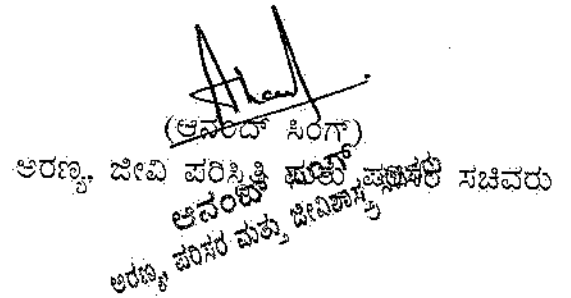 (ಆನಂದ್ ಸಿಂಗ್)
ಅರಣ್ಯ, ಜೀವಿ ಪರಿಸ್ಥಿತಿ ಮತ್ತು ಪರಿಸರ ಸಚಿವರು
ಆನಂದ್ ಸಿಂಗ್
ಅರಣ್ಯ, ಪರಿಸರ ಮತ್ತು ಜೀವಿಶಾಸ್ತ್ರ